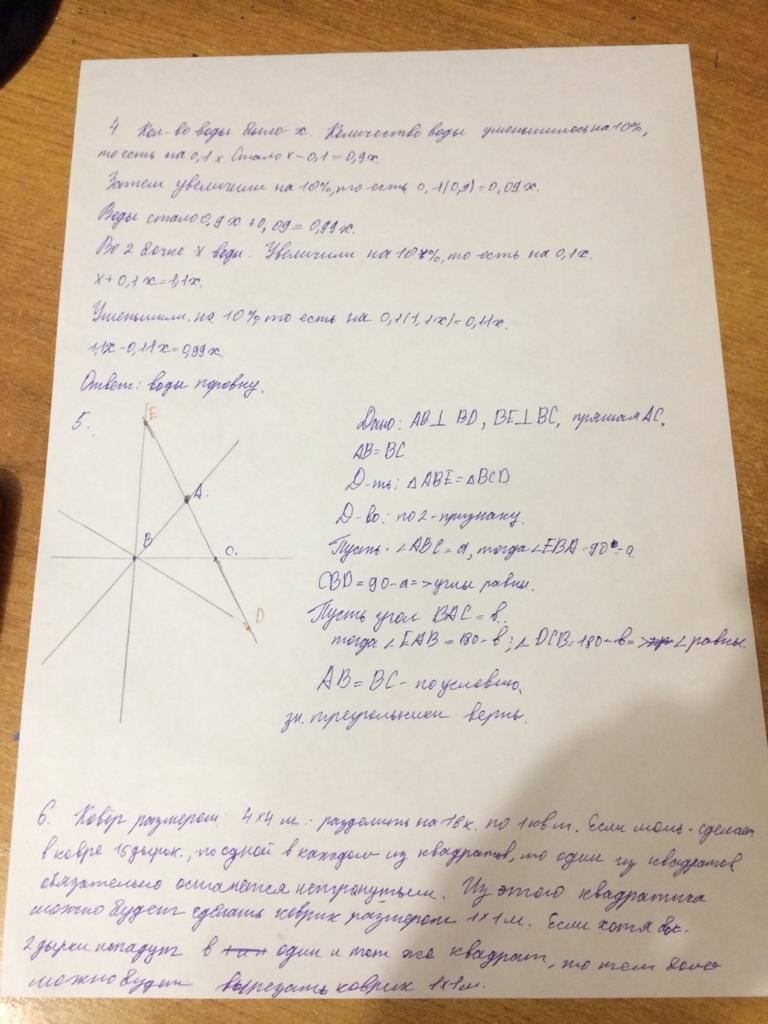 4. Кол-во воды было x. Количество воды уменьшилось на 10%,
то есть на 0,1x Стало x-0,1=0,9x.
Затем увеличили на 10%, то есть 0,1(0,9)=0,09x.
Воды стало 0,9x+0,09=0,99x.
Во 2 бочке x воды. Увеличили на 10%, то есть на 0,1x.
x+0,1x=1,1x.
Уменьшили на 10%, то есть на 0,1(1,1x)=0,11x.
1,1x-0,11x=0,99x.
Ответ: воды поровну.
5.
E
A.
B
C.
D
Дано: AB⊥BD, BE⊥BC, прямая AC,
AB=BC
Д-ть: △ABE=△BCD
Д-во: по 2-признаку.
Пусть ∠ABC=a, тогда ∠EBA=90°-a
CBD=90-a=>углы равны.
Пусть угол BAC=в.
тогда ∠EAB=180-в; ∠DCB=180-в=> ∠равны
AB=BC-по условию,
зн. треугольники верны.
6. Ковёр размером 4x4 м. разделить на 16к. по 1кв м. Если моль-сделает
в ковре 15дырок., по одной в каждом из квадратов, то один из квадратов
обязательно останется нетронутым. Из этого квадратика
можно будет сделать коврик размером 1x1м. Если хотя бы
2 дырки попадут в один и тот же квадрат, то тем более
можно будет вырезать коврик 1x1м.